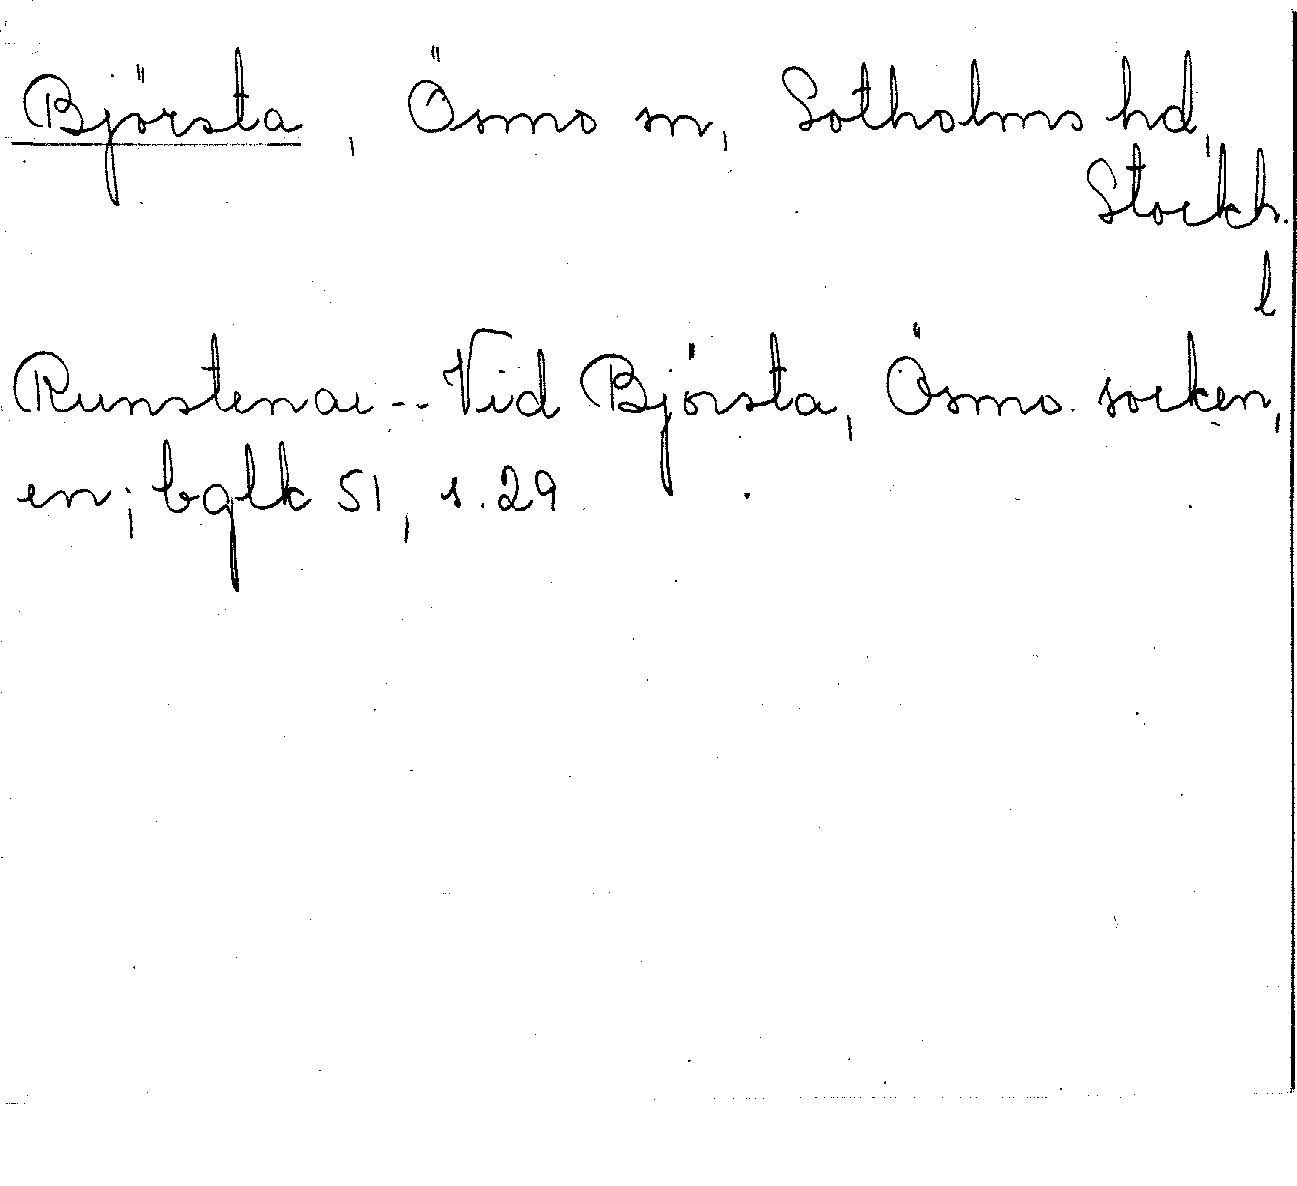 Björsta, Ösmo sn, Sotholms hd,
Stockh.
l
Runstenar -- Vid Björsta, Ösmo socken,
en; bglk 51, s. 29